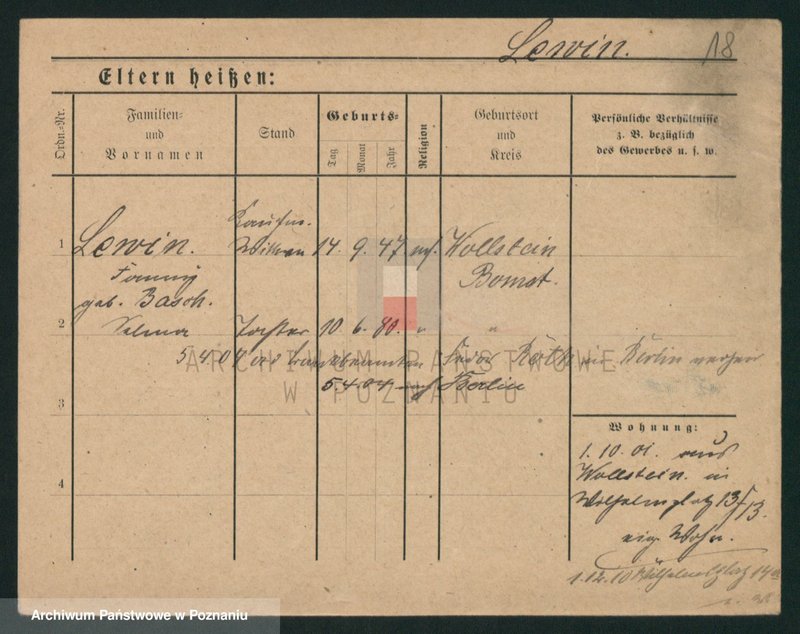 Lewin. 18
Eltern heißen:
Ordn.=Nr.
Familien=
und
Vornamen
Stand
Geburts=
Tag
Monat
Jahr
Religion
Geburtsort
und
Kreis
Persönliche Verhältnisse
z. B. bezüglich
des Gewerbes u. s. w.
Kaufm.
1 Lewin. Witwe 14. 9. 47 Wollstein
Fanny Bomst.
geb. Basch.
2 Selma Tochter 10. 6. 80. " "
5 4 04 Berlin
5 4 04 Berlin
3
Wohnung:
1. 10. 01. aus
Wollstein. in
4 Wilhelmsplatz 13/13.
eig. Wohn.
1. 12. 10 Wilhelmsplatz
ARCHIWUM PAŃSTWOWE
W POZNANIU
Archiwum Państwowe w Poznaniu